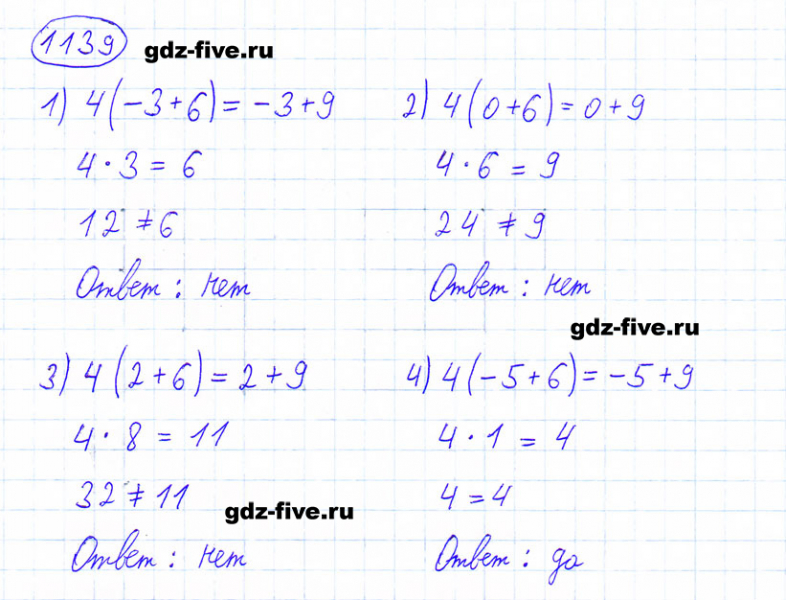 1139 gdz-five.ru
1) 4(-3+6)=-3+9
4·3=6
12≠6
Ответ: нет
2) 4(0+6)=0+9
4·6=9
24≠9
Ответ: нет
gdz-five.ru
3) 4(2+6)=2+9
4·8=11
32≠11
Ответ: нет
gdz-five.ru
4) 4(-5+6)=-5+9
4·1=4
4=4
Ответ: да